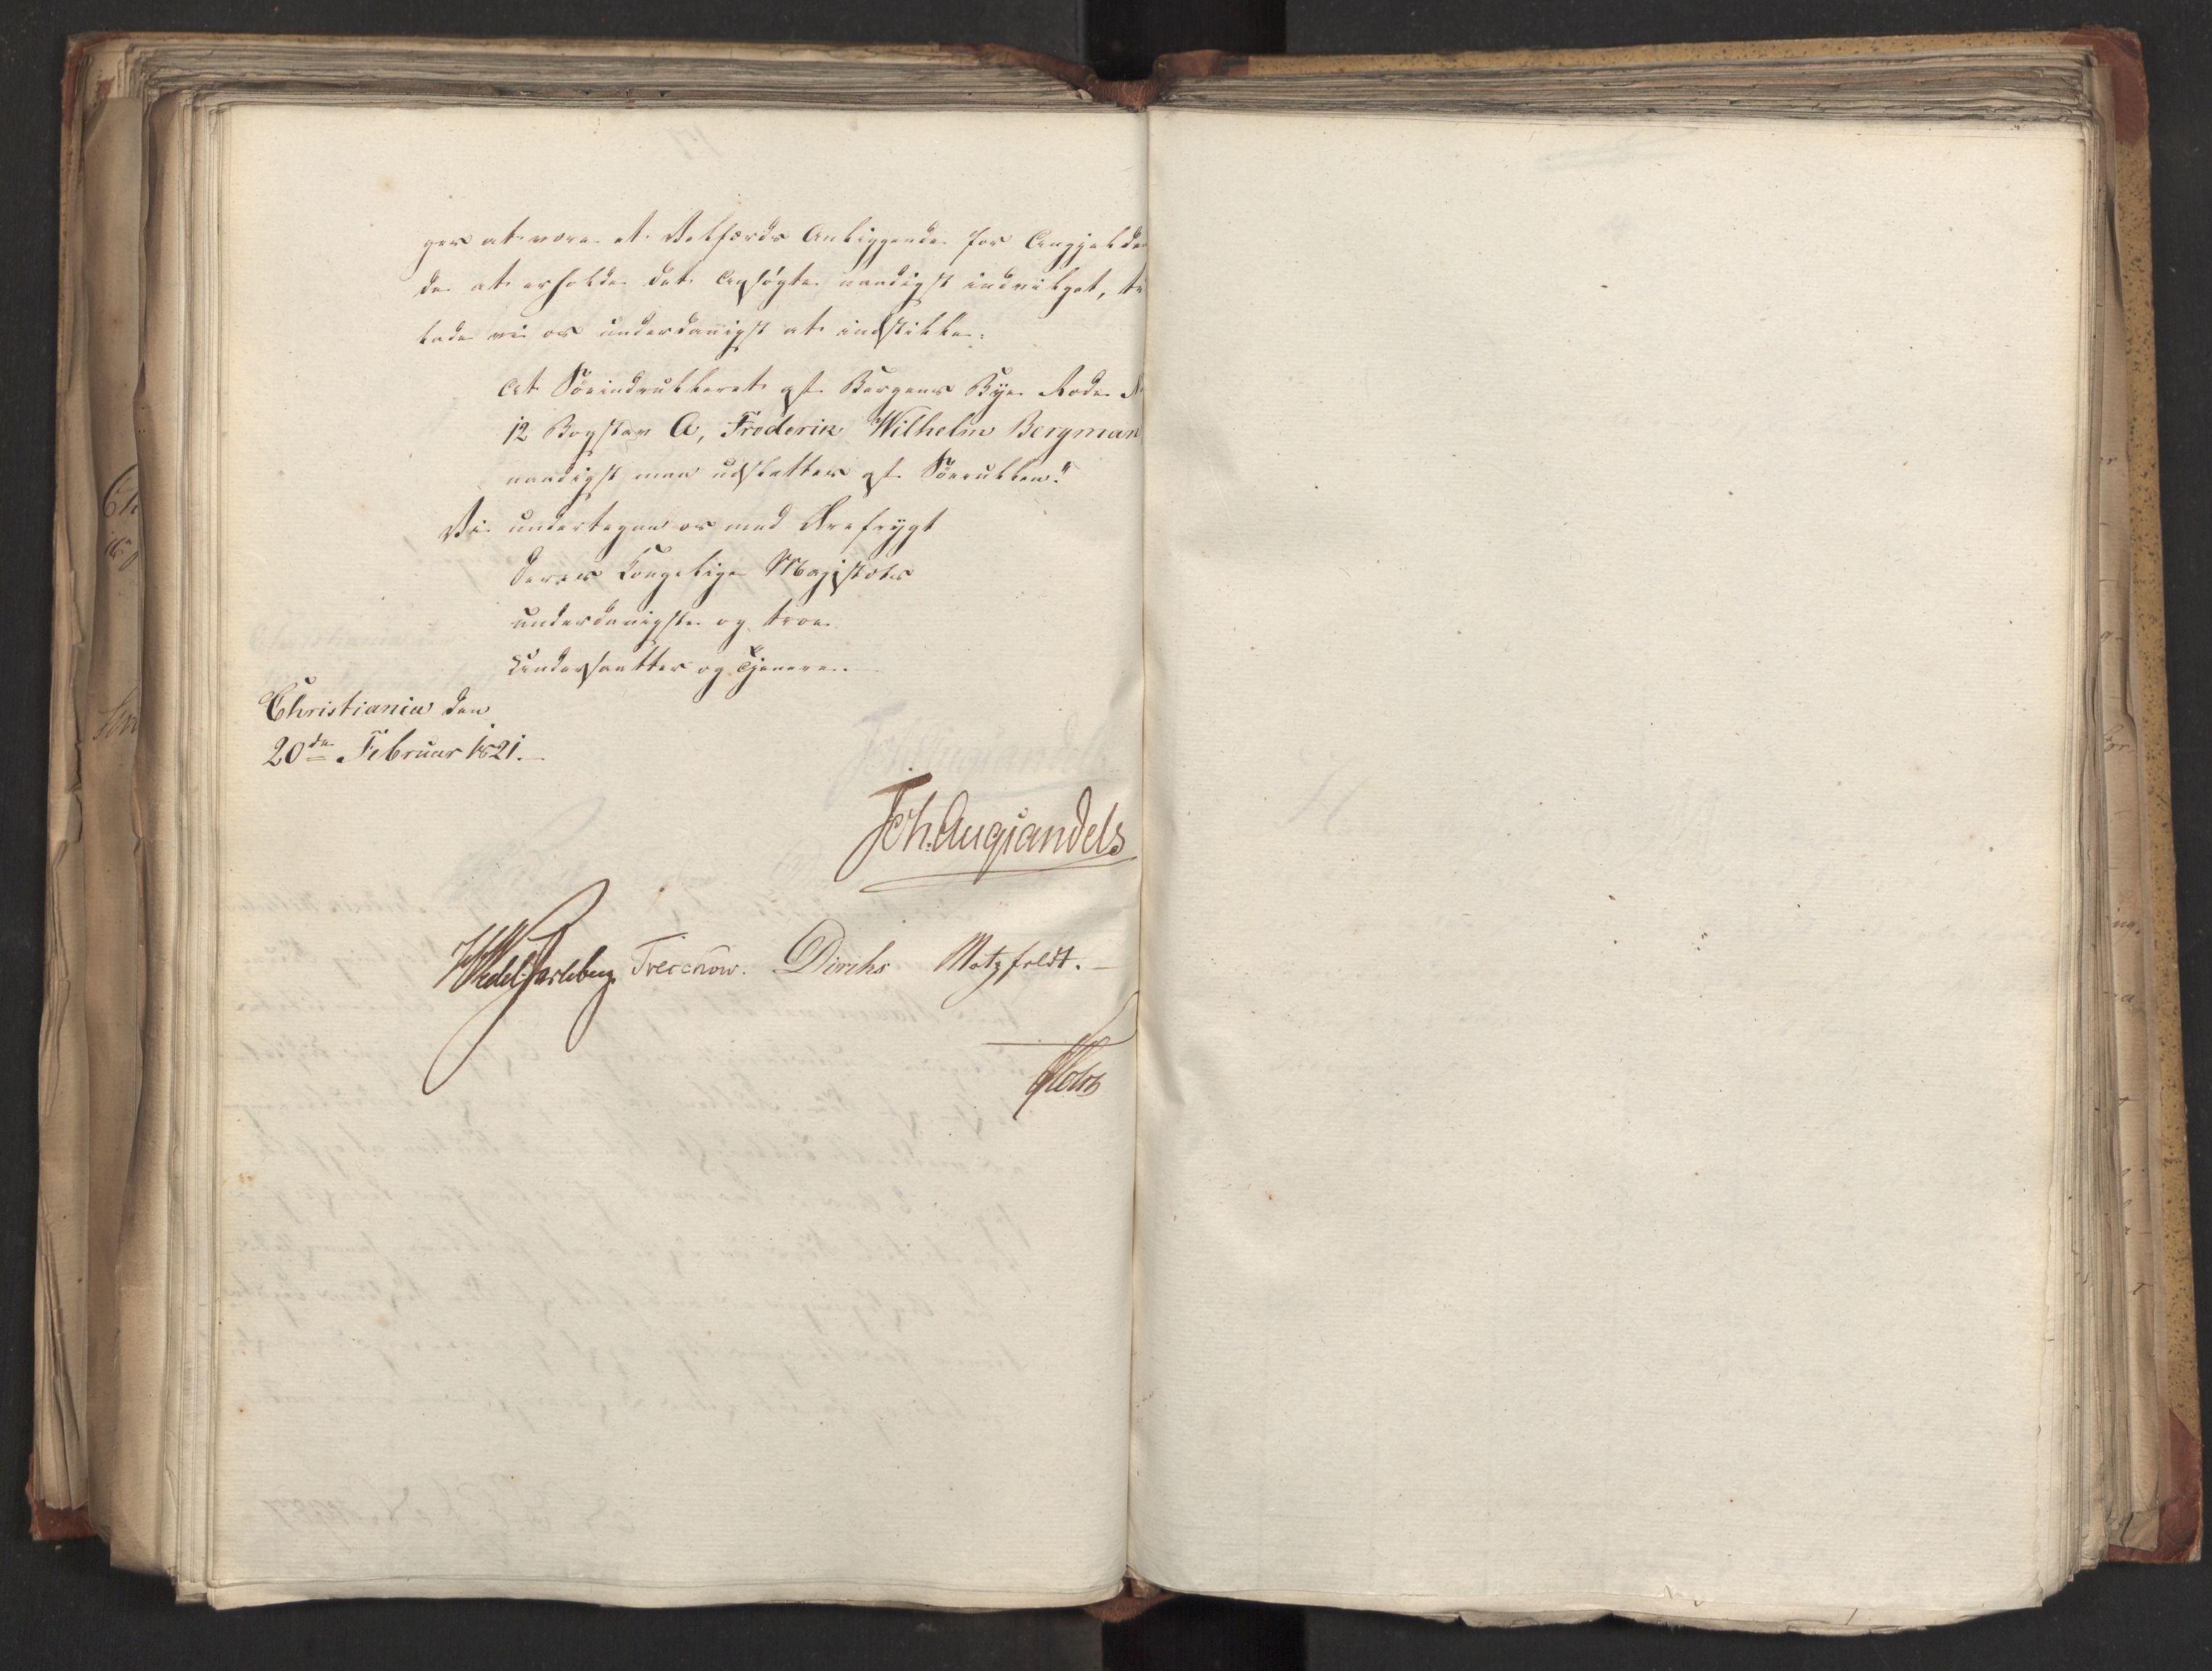 ger at være et Velfærds Anliggende for Angjelden
de at erholde det Ansøgte naadigst indvilget, til
lade vi os underdanigst at indstille:
At Søeindrulleret af Bergens Bye Rode N
12 Bogstav A, Frederik Wilhelm Bergman
naadigst maa udslettes af Søerullen."
Vi undertegne os med Ærefrygt
Deres Kongelige Majestæts
underdanigste og troe
Undersaatter og Tjenere.
Christiania den
20de Februar 1821.
Joh. Aug. Sandels
HWedel Jarlsberg Treschow. Diriks Motzfeldt.
Holst